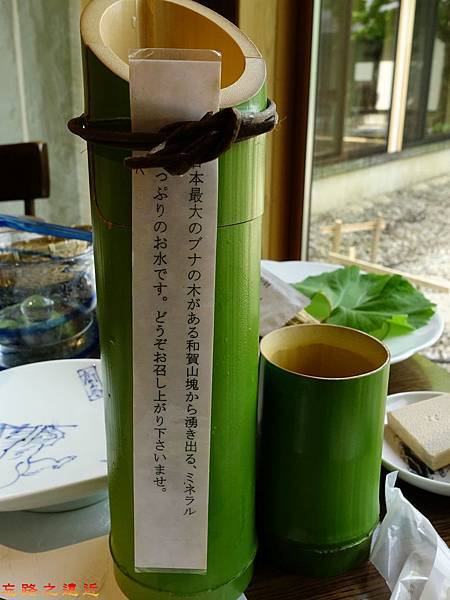 日本最大のブナの木がある和賀山塊から湧き出る、ミネラル
っぷりのお水です。どうぞお召し上がり下さいませ。
忘路之遠近